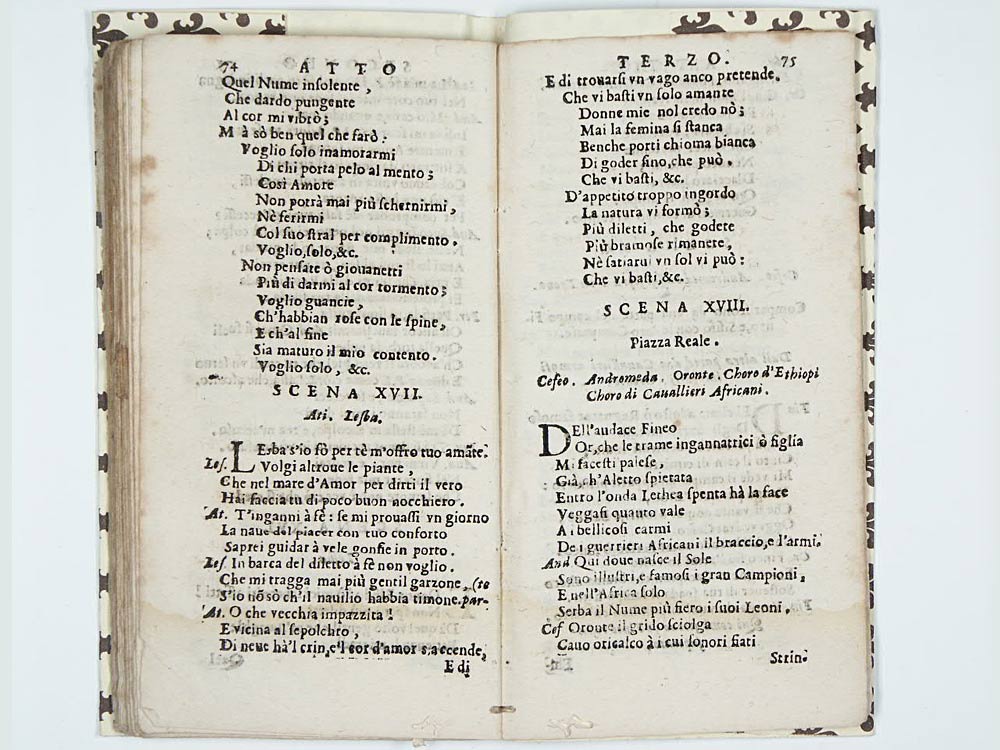 74 ATTO
Quel Nume insolente,
Che dardo pungente
Al cor mi vibrò;
Mà sò ben quel che farò:
Voglio solo inamorarmi
Di chi porta pelo al mento;
Così Amore
Non potrà mai più schernirmi,
Nè ferirmi
Col suo stral per complimento.
Voglio, solo, &c.
Non pensate ò giouanetti
Più di darmi al cor tormento;
Voglio guancie,
Ch'habbian rose con le spine,
E ch'al fine
Sia maturo il mio contento.
Voglio solo, &c.
SCENA XVII.
Ati. Lesba.
LEsba s'io fò per tè m'offro tuo amãte.
Les. Volgi altroue le piante,
Che nel mare d'Amor per dirti il vero
Hai faccia tu di poco buon nocchiero.
At. T'inganni à fè: se mi prouassi vn giorno
La naue del piacer con tuo conforto
Saprei guidar à vele gonfie in porto.
Les. In barca del diletto à fè non voglio.
Che mi tragga mai più gentil garzone, (te
S'io nõ sò ch'il nauilio habbia timone. par-
At. O che vecchia impazzita!
E vicina al sepolchro,
Di neue hà'l crin, e'l cor d'amor s'accende,
E di
TERZO. 75
E di trouarsi vn vago anco pretende.
Che vi basti vn solo amante
Donne mie nol credo nò;
Mai la femina si stanca
Benche porti chioma bianca
Di goder sino, che può.
Che vi basti, &c.
D'appetito troppo ingordo
La natura vi formò;
Più diletti, che godete
Più bramose rimanete,
Nè satiarui vn sol vi può:
Che vi basti, &c.
SCENA XVIII.
Piazza Reale.
Cefeo. Andromeda, Oronte, Choro d'Ethiopi
Choro di Cauallieri Africani.
DEll'audace Fineo
Or, che le trame ingannatrici ò figlia
Mi facesti palese,
Già, ch'Aletto spietata
Entro l'onda Lethea spenta hà la face
Veggasi quanto vale
Ai bellicosi carmi
De i guerrieri Africani il braccio, e l'armi.
And Qui doue nasce il Sole
Sono illustri, e famosi i gran Campioni,
E nell'Africa solo
Serba il Nume più fiero i suoi Leoni.
Cef Oronte il grido sciolga
Cauo oricalco à i cui sonori fiati
Strin-